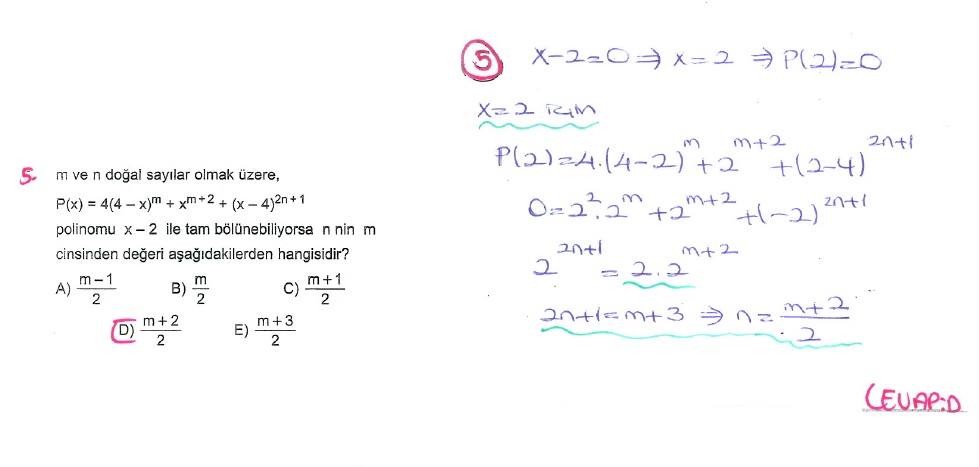 5. m ve n doğal sayılar olmak üzere,
P(x) = 4(4 – x)^m + x^(m+2) + (x – 4)^(2n+1)
polinomu x – 2 ile tam bölünebiliyorsa n nin m
cinsinden değeri aşağıdakilerden hangisidir?
A) (m – 1)/2 B) m/2 C) (m + 1)/2
D) (m + 2)/2 E) (m + 3)/2
5 x-2=0 ⇒ x=2 ⇒ P(2)=0
x=2 için
P(2)=4.(4-2)^m + 2^(m+2) + (2-4)^(2n+1)
0=2^2.2^m + 2^(m+2) + (-2)^(2n+1)
2^(2n+1) = 2.2^(m+2)
2n+1=m+3 ⇒ n=(m+2)/2
CEVAP:D